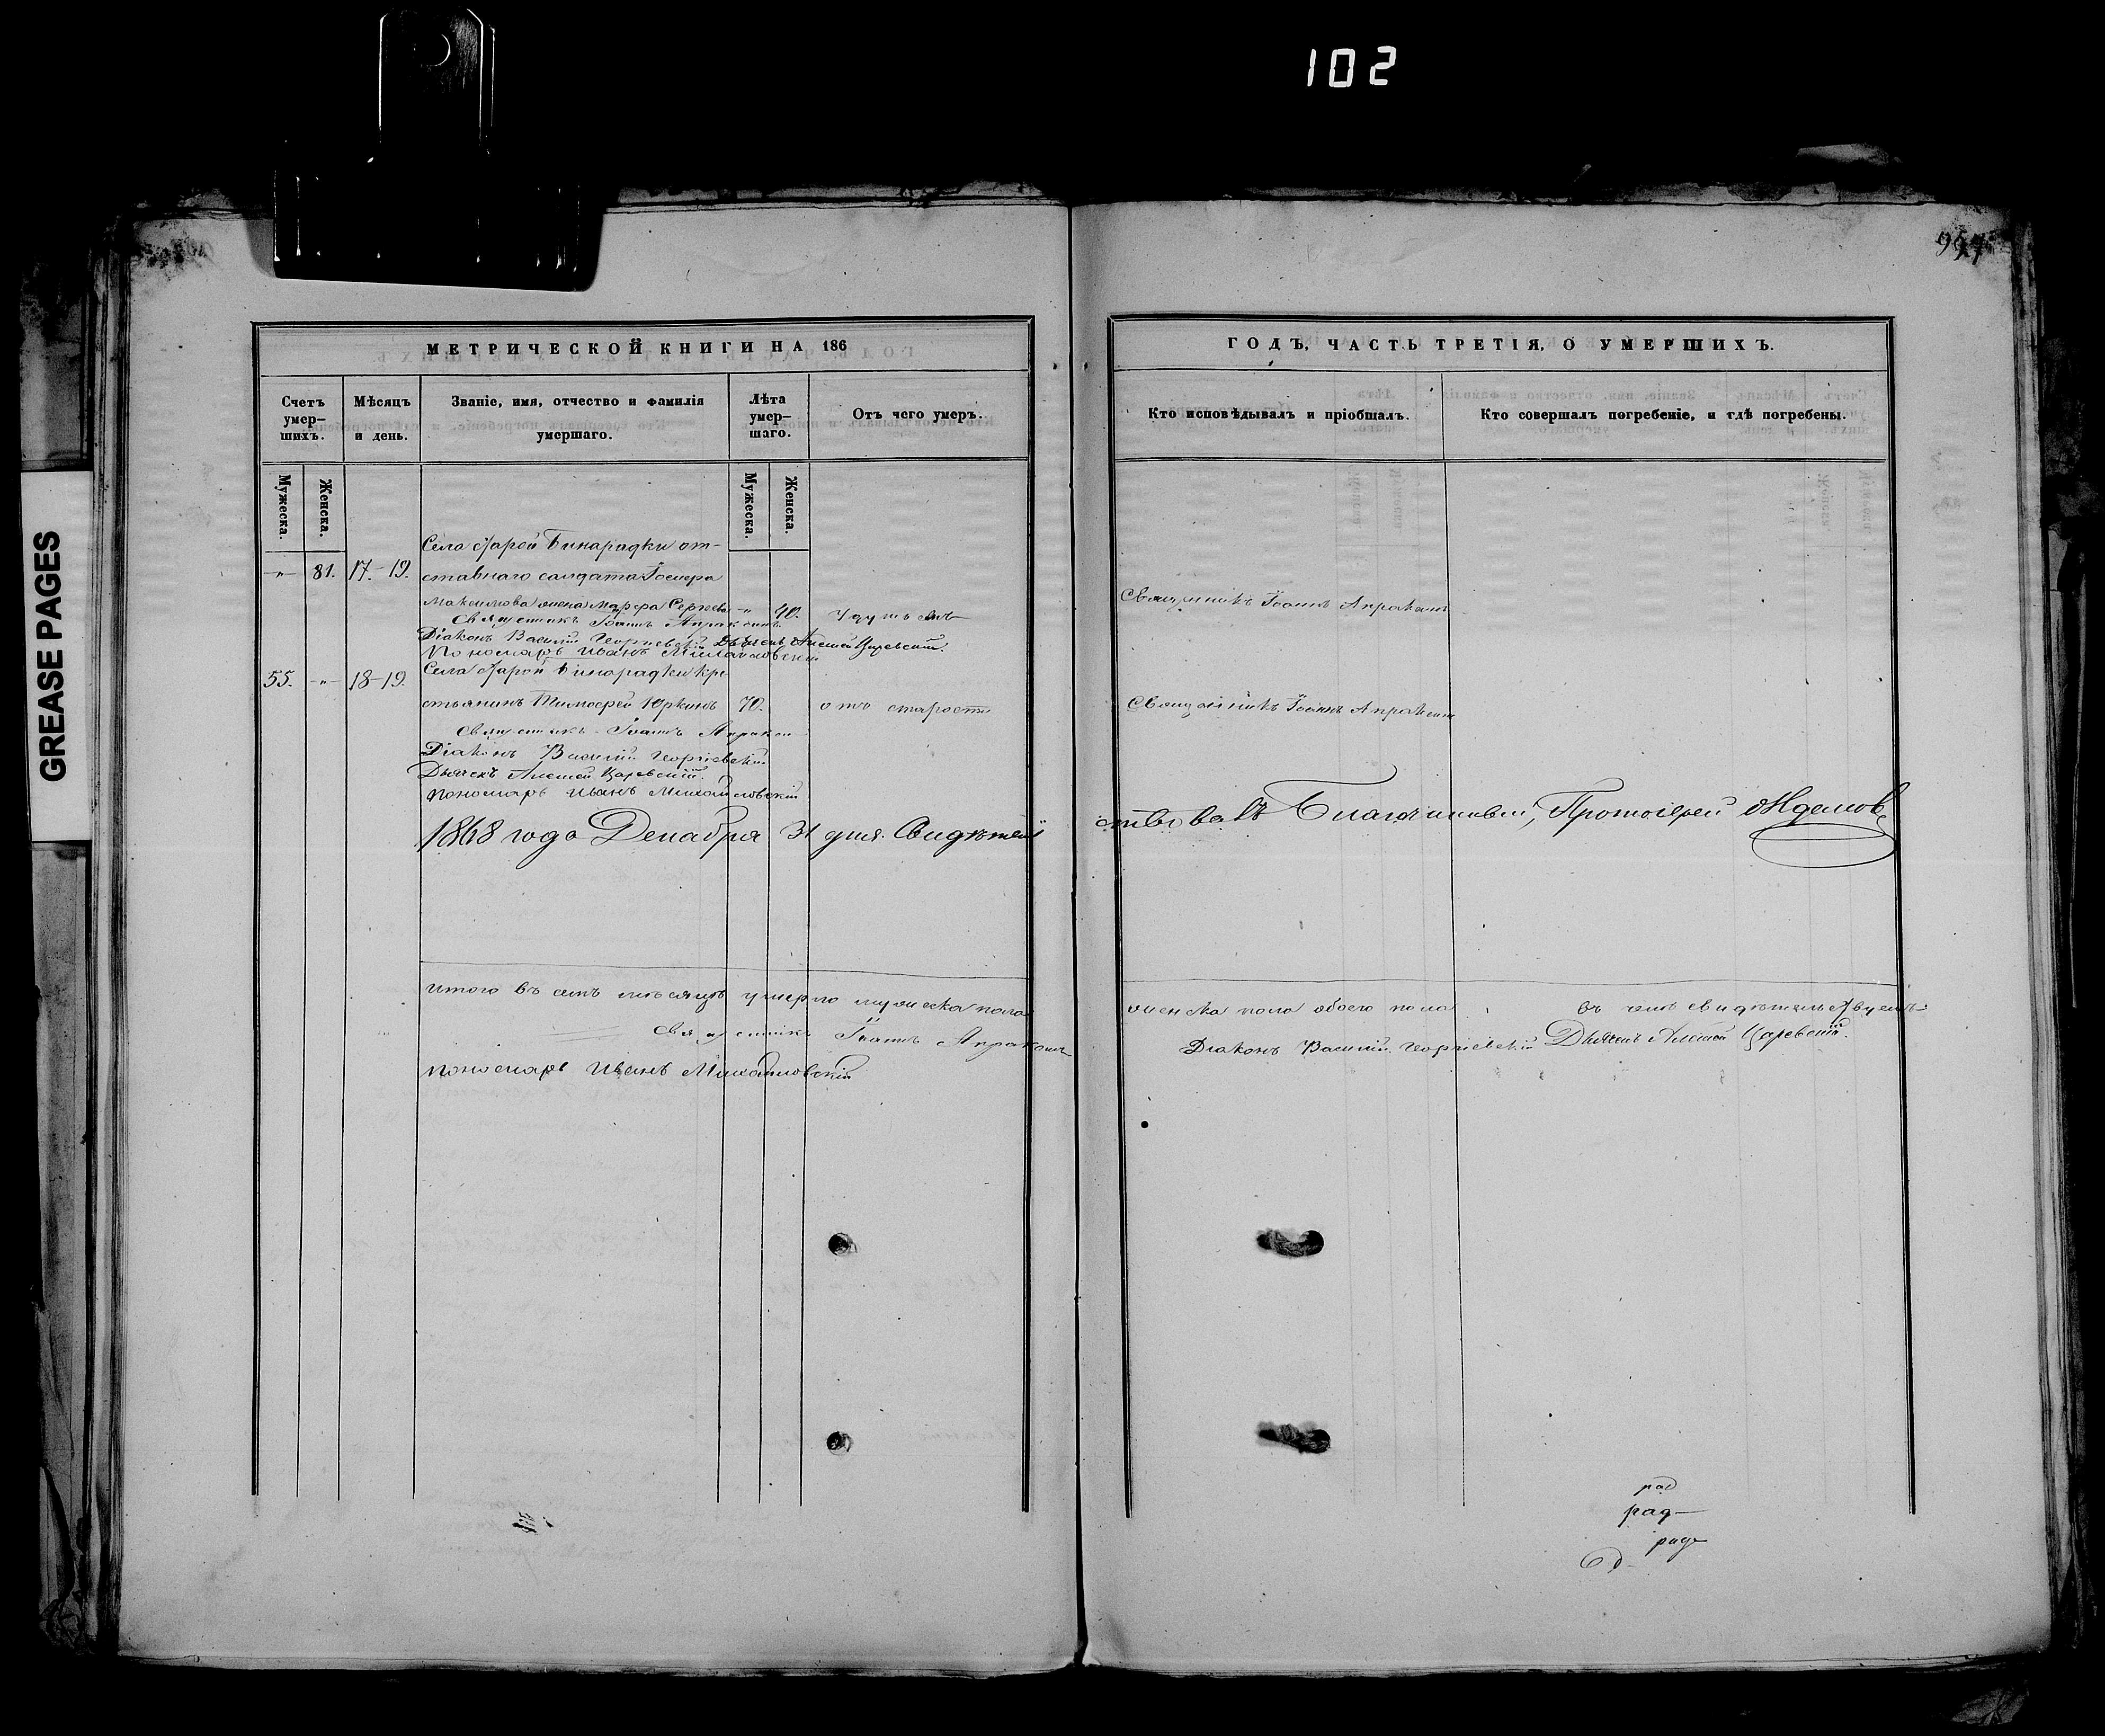 102
GREASE PAGES
МЕТРИЧЕСКОЙ КНИГИ НА 186
Счетъ умер-шихъ.
Мѣсяцъ и день.
Званіе, имя, отчество и фамилія умершаго.
Лѣта умер-шаго.
Отъ чего умеръ.
Мужеска.
Женска.
Мужеска.
Женска.
Села Старой Бинарадки от-
81. 17.-19. ставнаго солдата
Максимова жена Марфа Сергѣева 40.
Священникъ Іоаннъ
Діаконъ Василій Георгіевскій Дьячекъ Алексей Царевскій.
Пономарь Иванъ Михайловскій
Села Старой Бинарадки кре-
55. 18-19. стьянинъ Тимофей Юркинъ 70. отъ старости
Священникъ Іоаннъ
Діаконъ Василій Георгіевскій
Дьячекъ Алексей Царевскій.
Пономарь Иванъ Михайловскій
1868 года Декабря 31 дня. Свидѣтель
итого въ семъ мѣсяцѣ умерло мужеска пола
Священникъ Іоаннъ
Пономарь Иванъ Михайловскій
ГОДЪ, ЧАСТЬ ТРЕТІЯ, О УМЕРШИХЪ.
Кто исповѣдывалъ и пріобщалъ.
Кто совершалъ погребеніе, и гдѣ погребены.
Священникъ Іоаннъ
Священникъ Іоаннъ
ствовалъ Благочинный, Протоіерей
женска пола обоего пола въ чемъ свидѣтельствуемъ
Діаконъ Василій Георгіевскій Дьячекъ Алексей Царевскій.
рад
рад